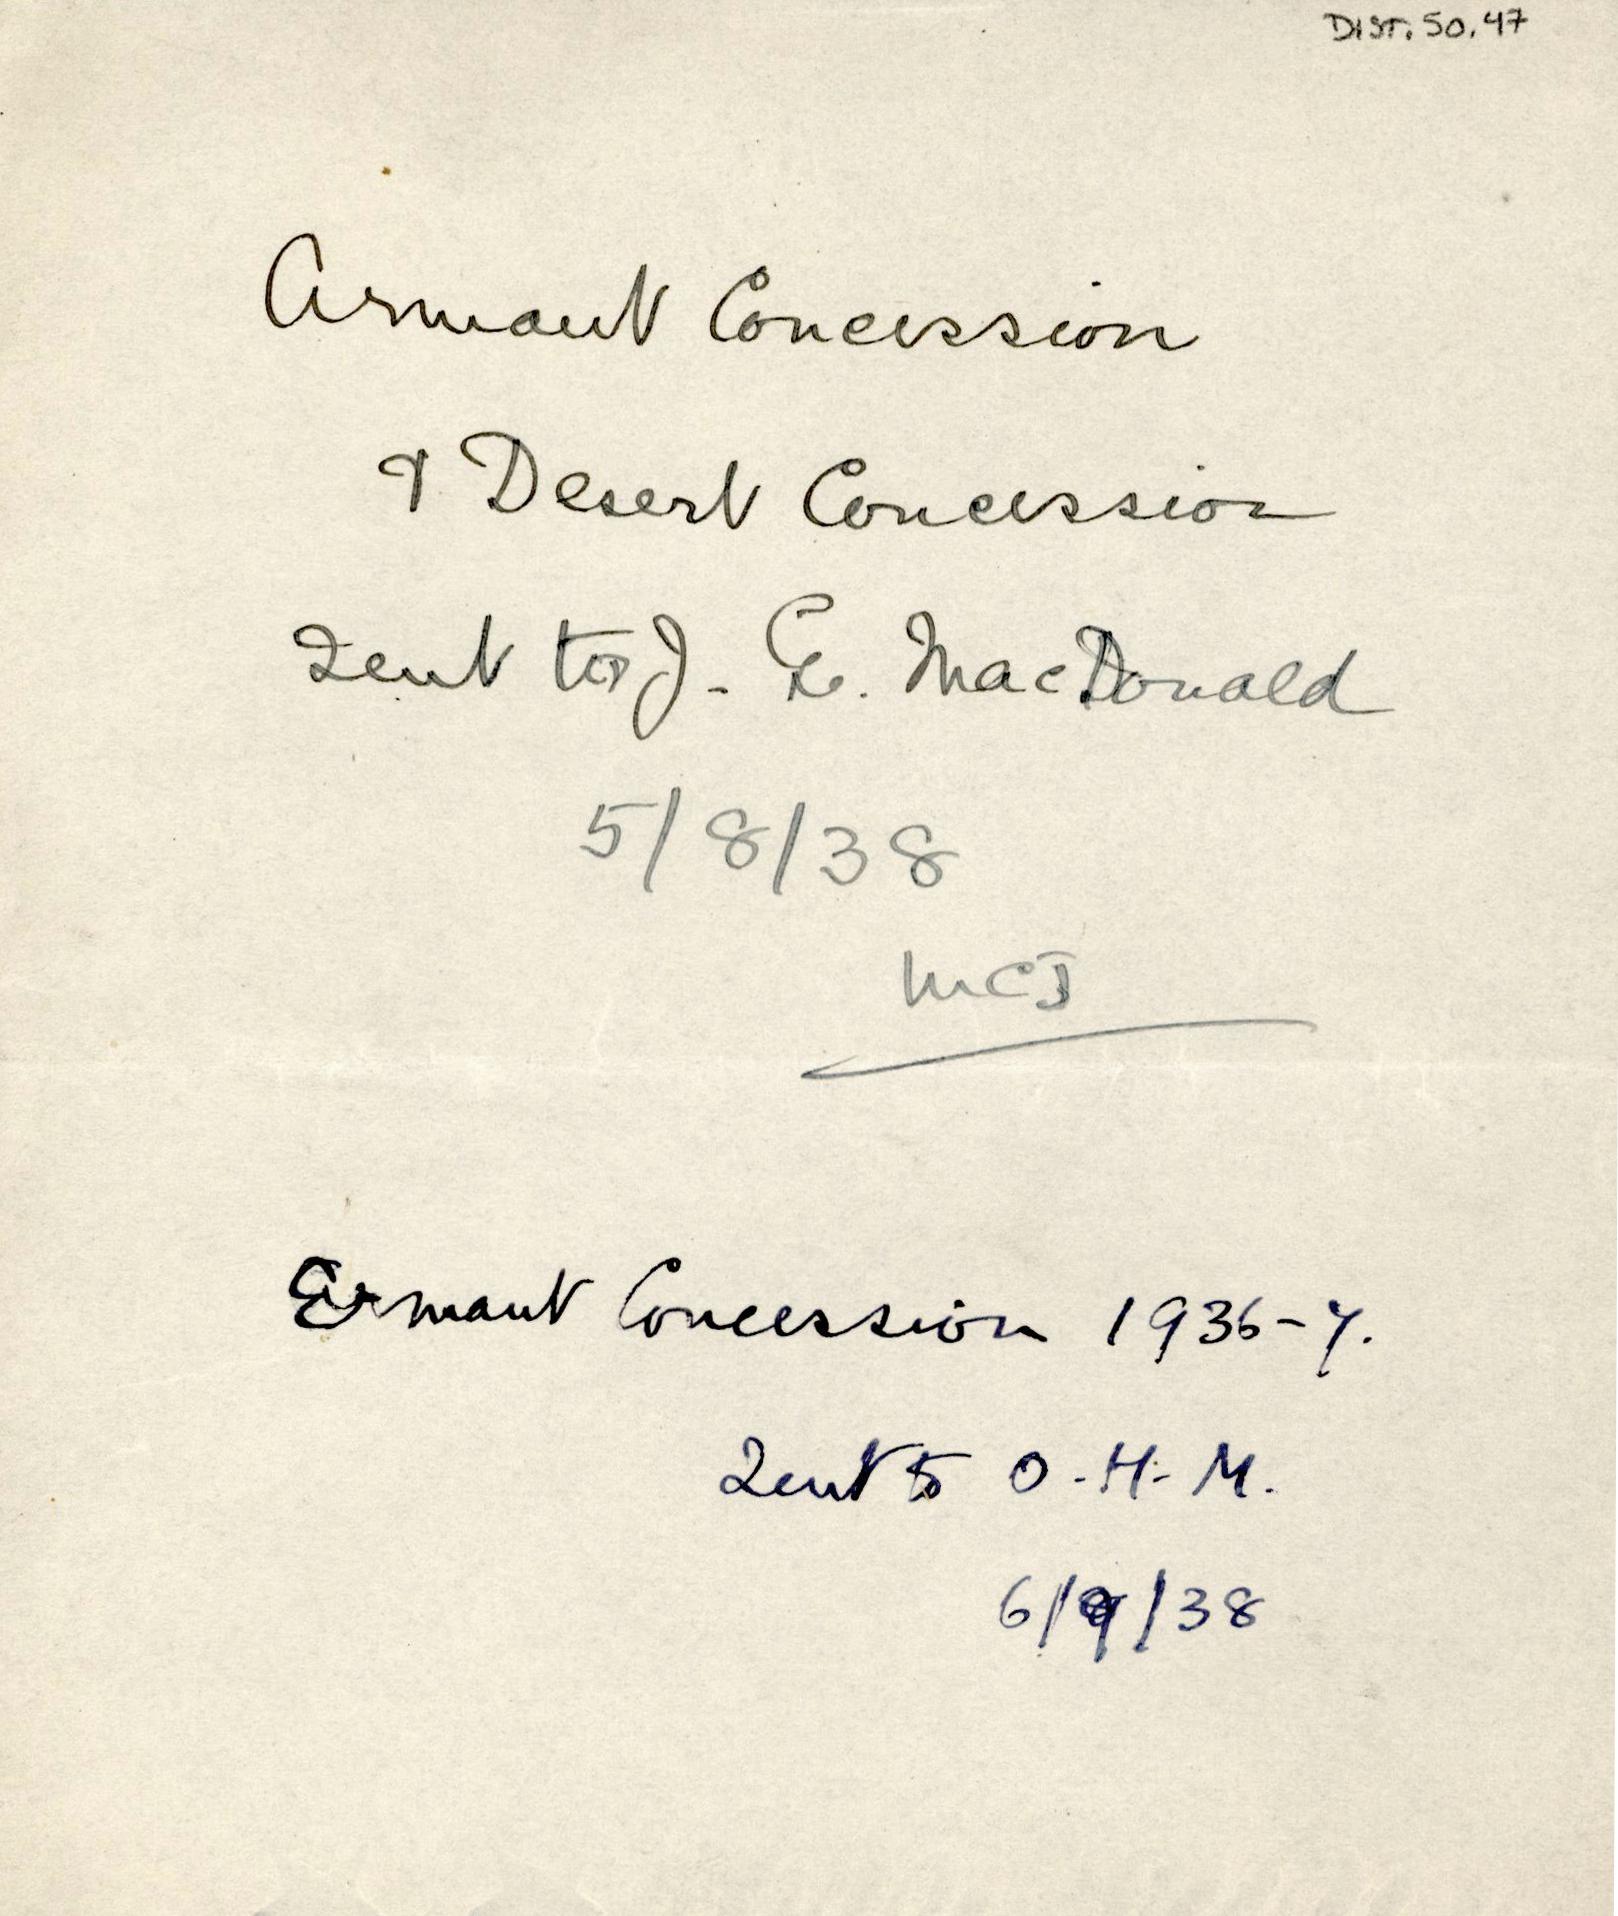 DIST. 50.47
Armant Concession
& Desert Concession
Lent to J. G. MacDonald
5/8/38
MCJ
Ermant Concession 1936-7.
Lent to O.H.M.
6/9/38